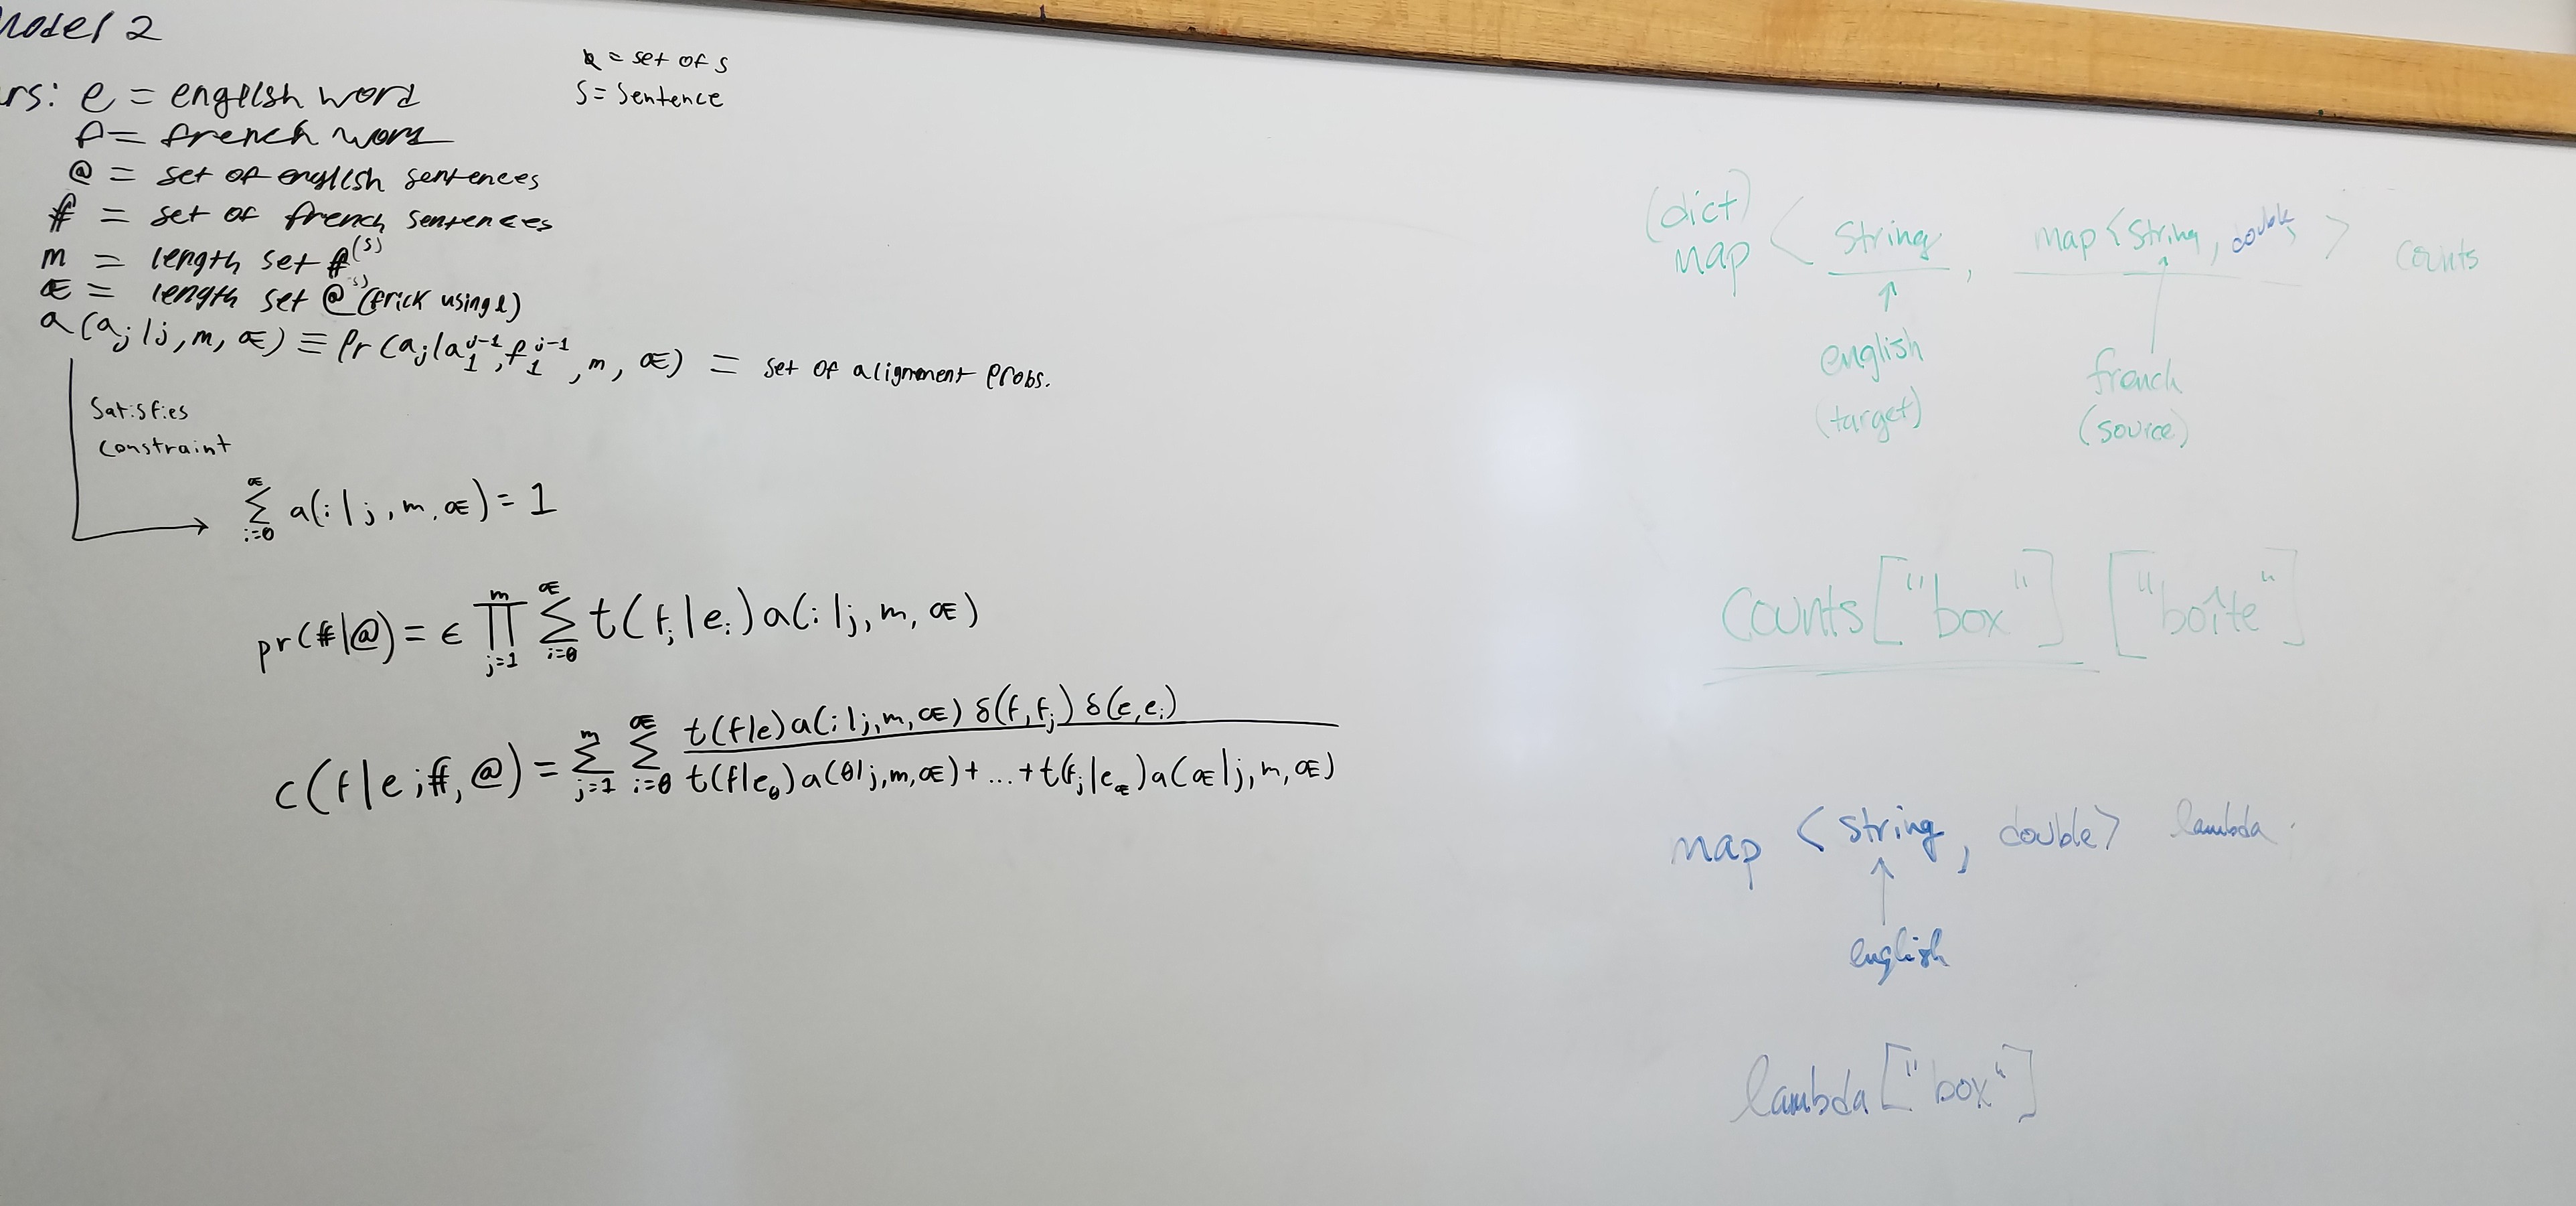 Model 2
rs: e = english word
f = french word
@ = set of english sentences
ff = set of french sentences
m = length set ff^(s)
Œ = length set @^(s) (frick using l)
a(a_j | j, m, Œ) ≡ Pr(a_j | a_1^{j-1}, f_1^{j-1}, m, Œ) = set of alignment probs.
= set of s
S = Sentence
Satisfies
constraint
Σ_{i=0}^{Œ} a(i | j, m, Œ) = 1
pr(ff | @) = ϵ ∏_{j=1}^{m} Σ_{i=0}^{Œ} t(f_j | e_i) a(i | j, m, Œ)
c(f | e; ff, @) = Σ_{j=1}^{m} Σ_{i=0}^{Œ} t(f|e) a(i | j, m, Œ) δ(f, f_j) δ(e, e_i)
t(f|e_0) a(0 | j, m, Œ) + ... + t(f_j | e_Œ) a(Œ | j, m, Œ)
(dict)
map < String, map < String, double > > counts
english
(target)
french
(source)
Counts["box"] ["boîte"]
map < String, double > lambda
english
lambda["box"]